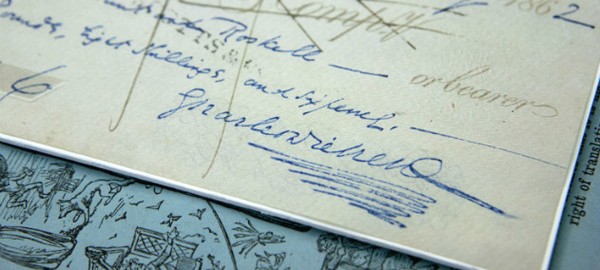 1862
Compy
Roskell —
or bearer
Pounds, Eight Shillings, and Sixpence. —
6
Charles Dickens
right of translation